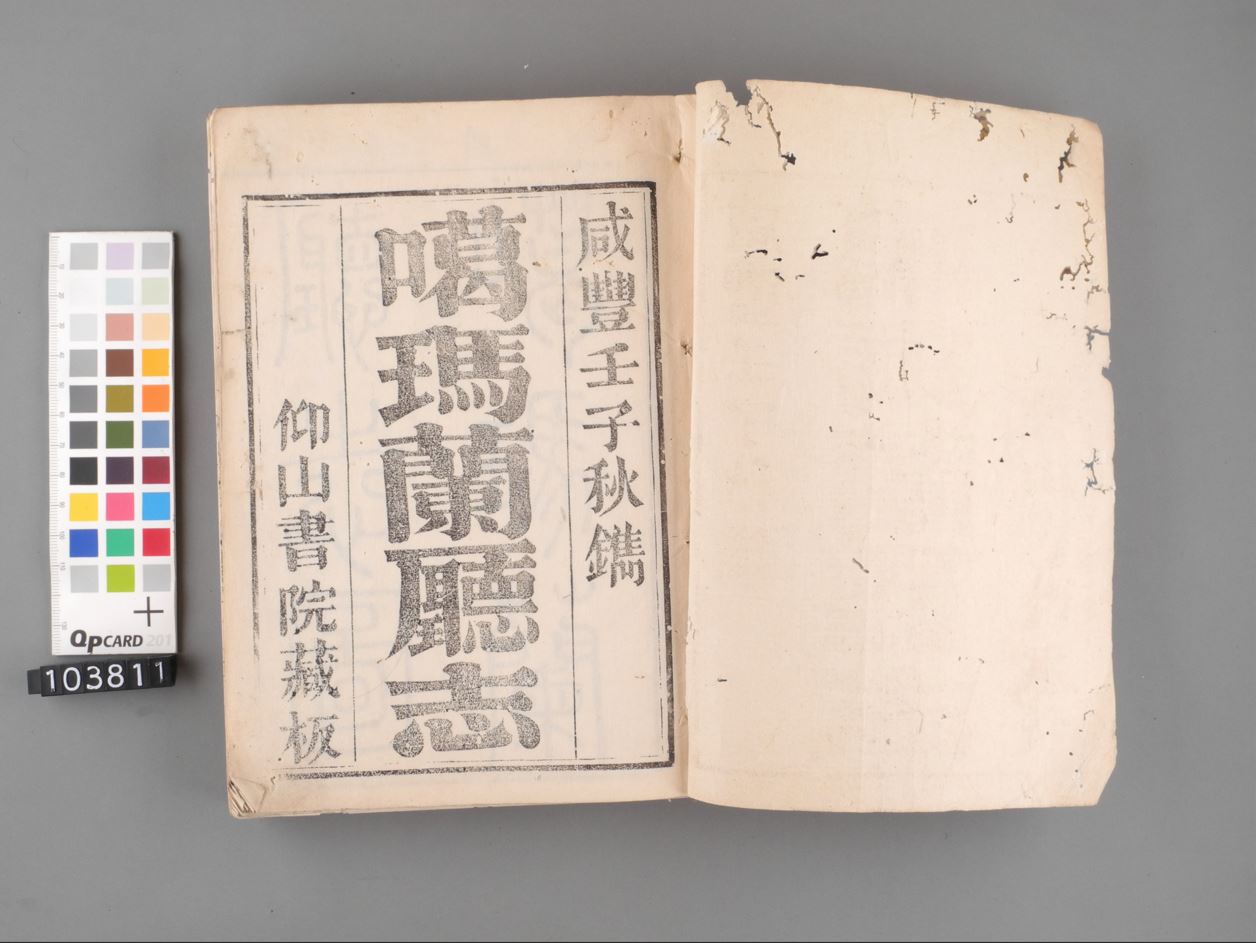 咸豐壬子秋鐫
噶瑪蘭廳志
仰山書院藏板
QPCARD 201
103811